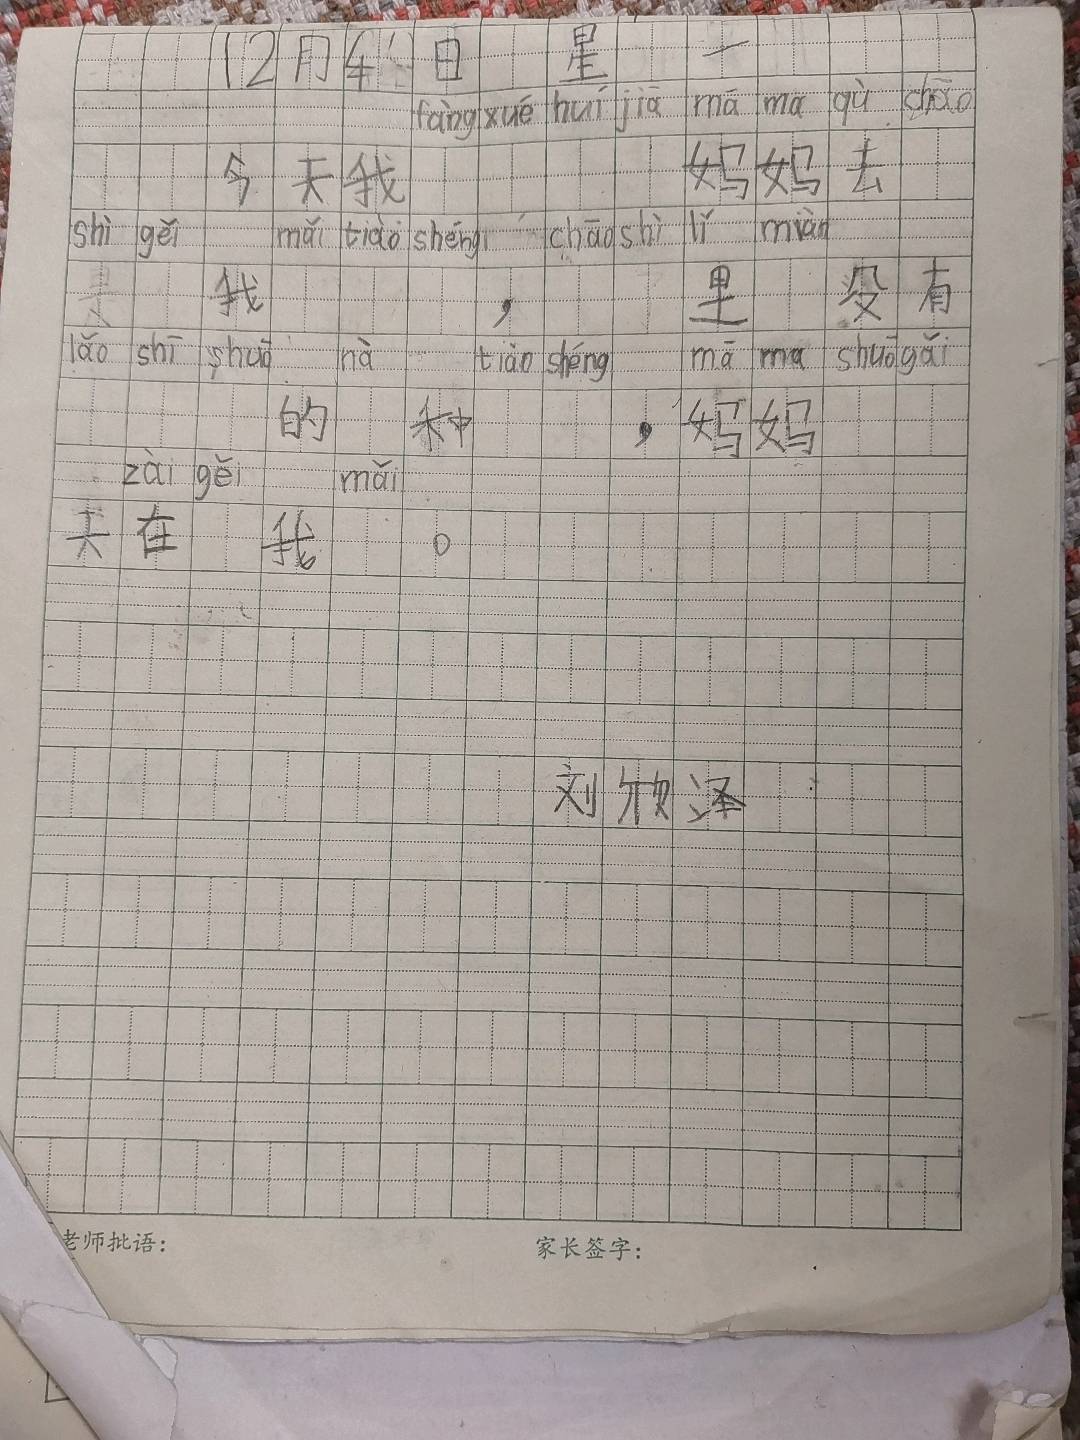 12月4日 星 一
fàng xué huí jiā mā ma qù chāo
今天我 妈妈去
shì gěi mǎi tiào shéng chāo shì lǐ miàn
我 ， 里 没有
lǎo shī shuō nà tiào shéng mā ma shuō gǎi
的 种 ，妈妈
zài gěi mǎi
天在 我 。
刘欣泽
老师批语： 家长签字：